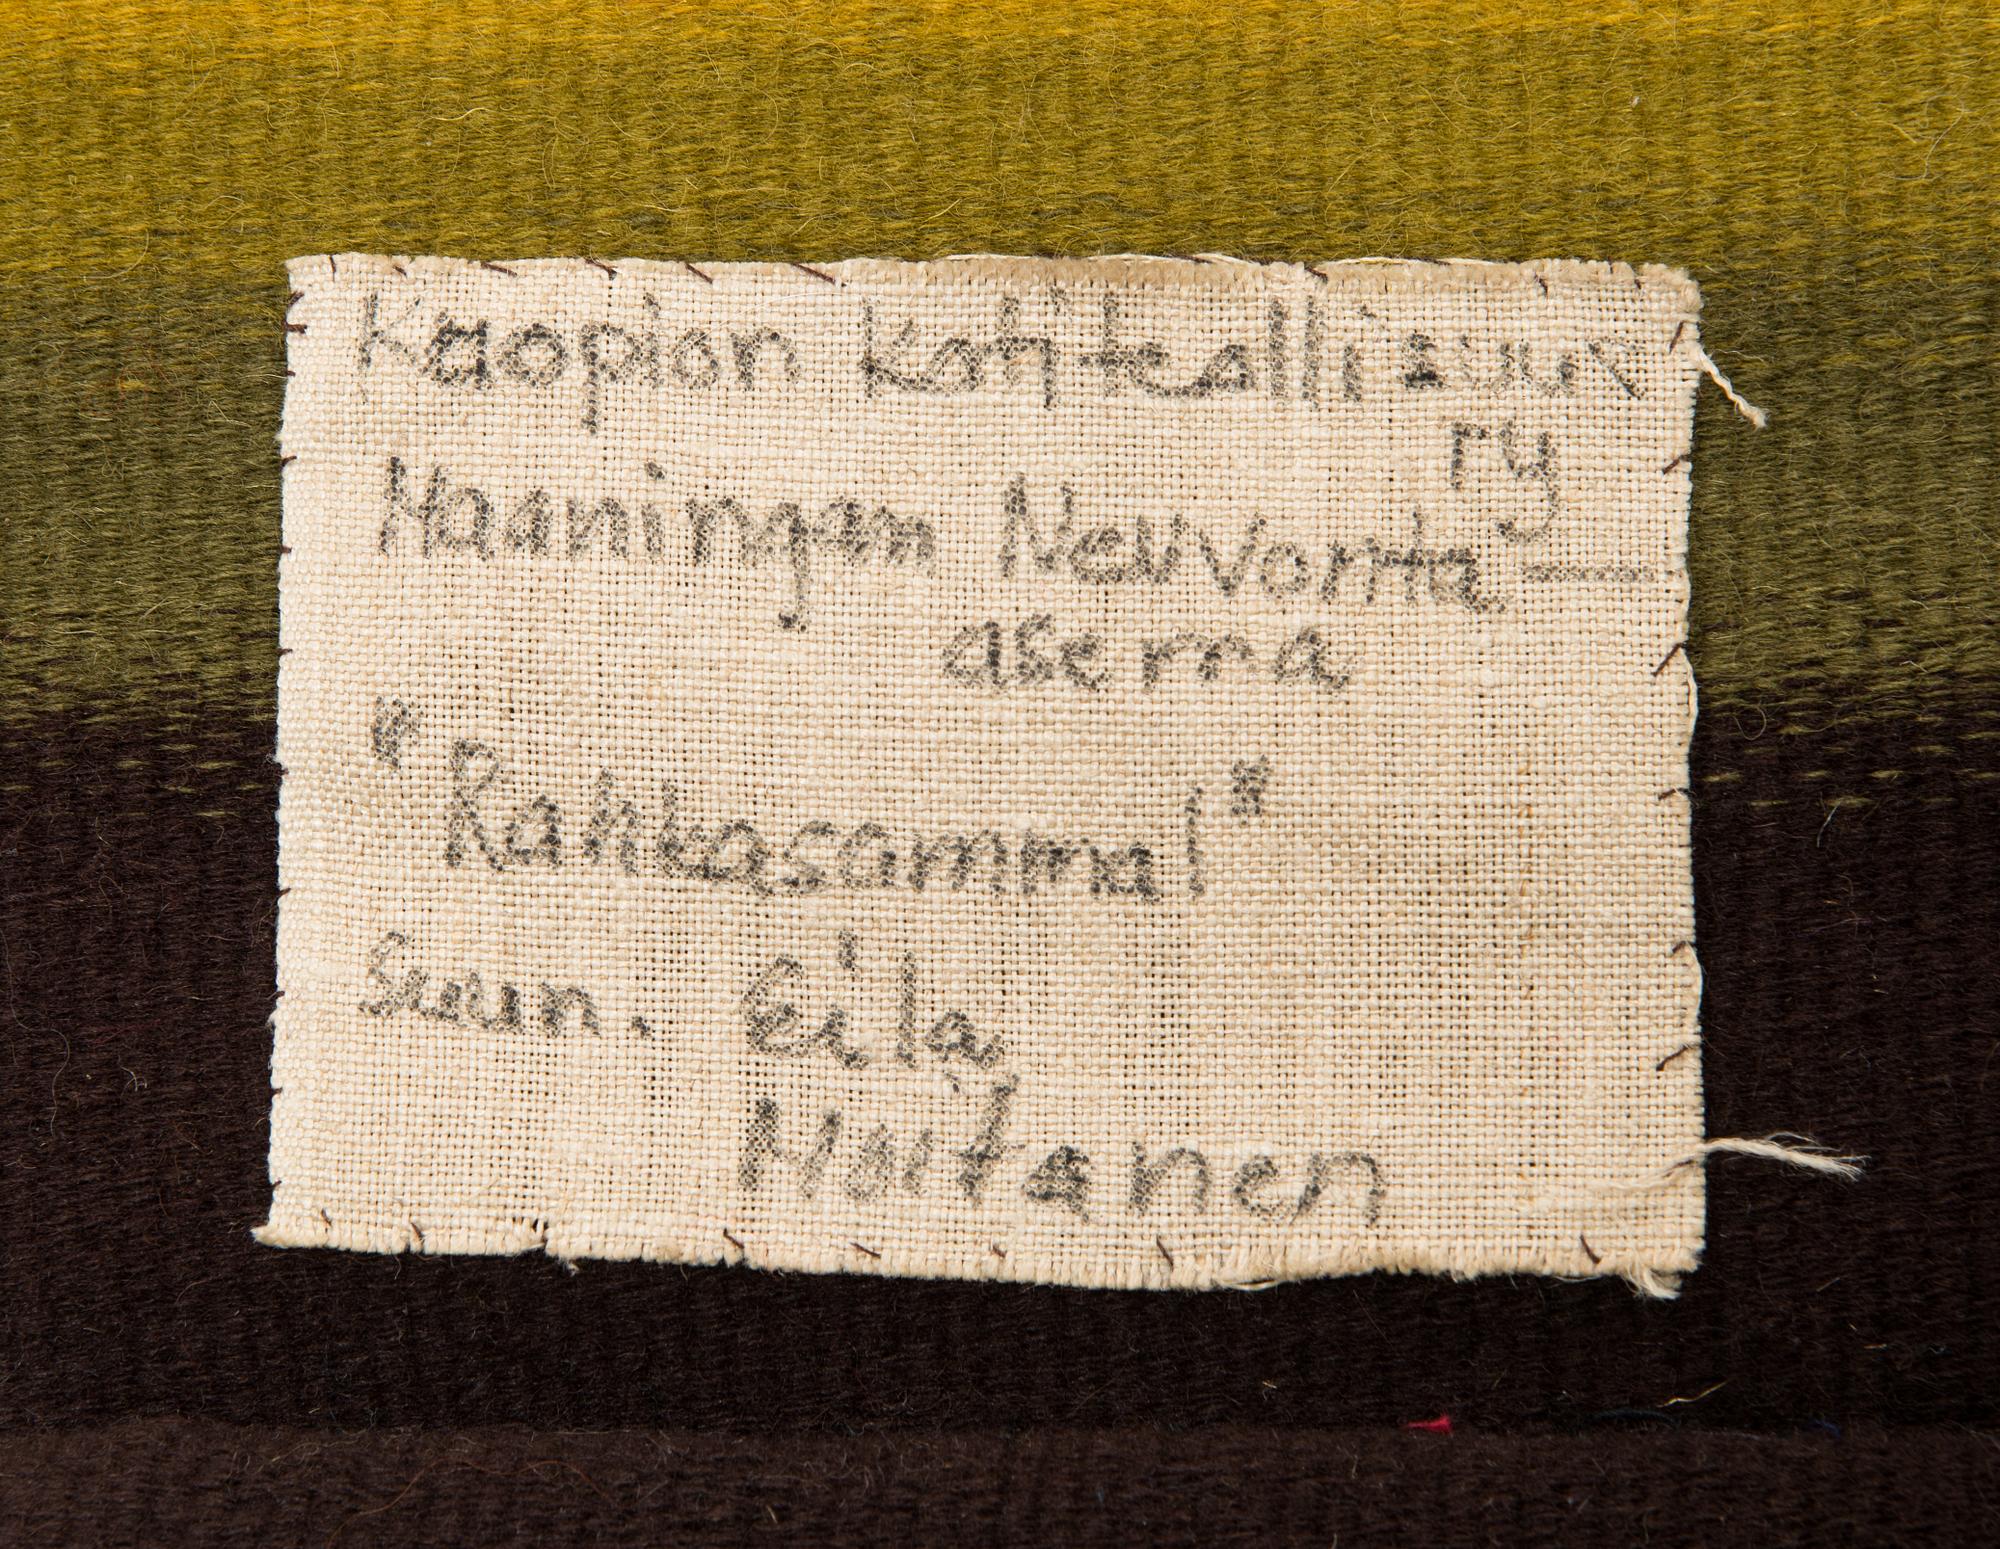 Kuopion Kotiteollisuus
ry
Maaningan Neuvonta-
asema
"Rahkasammal"
Suun. Eila
Moitanen